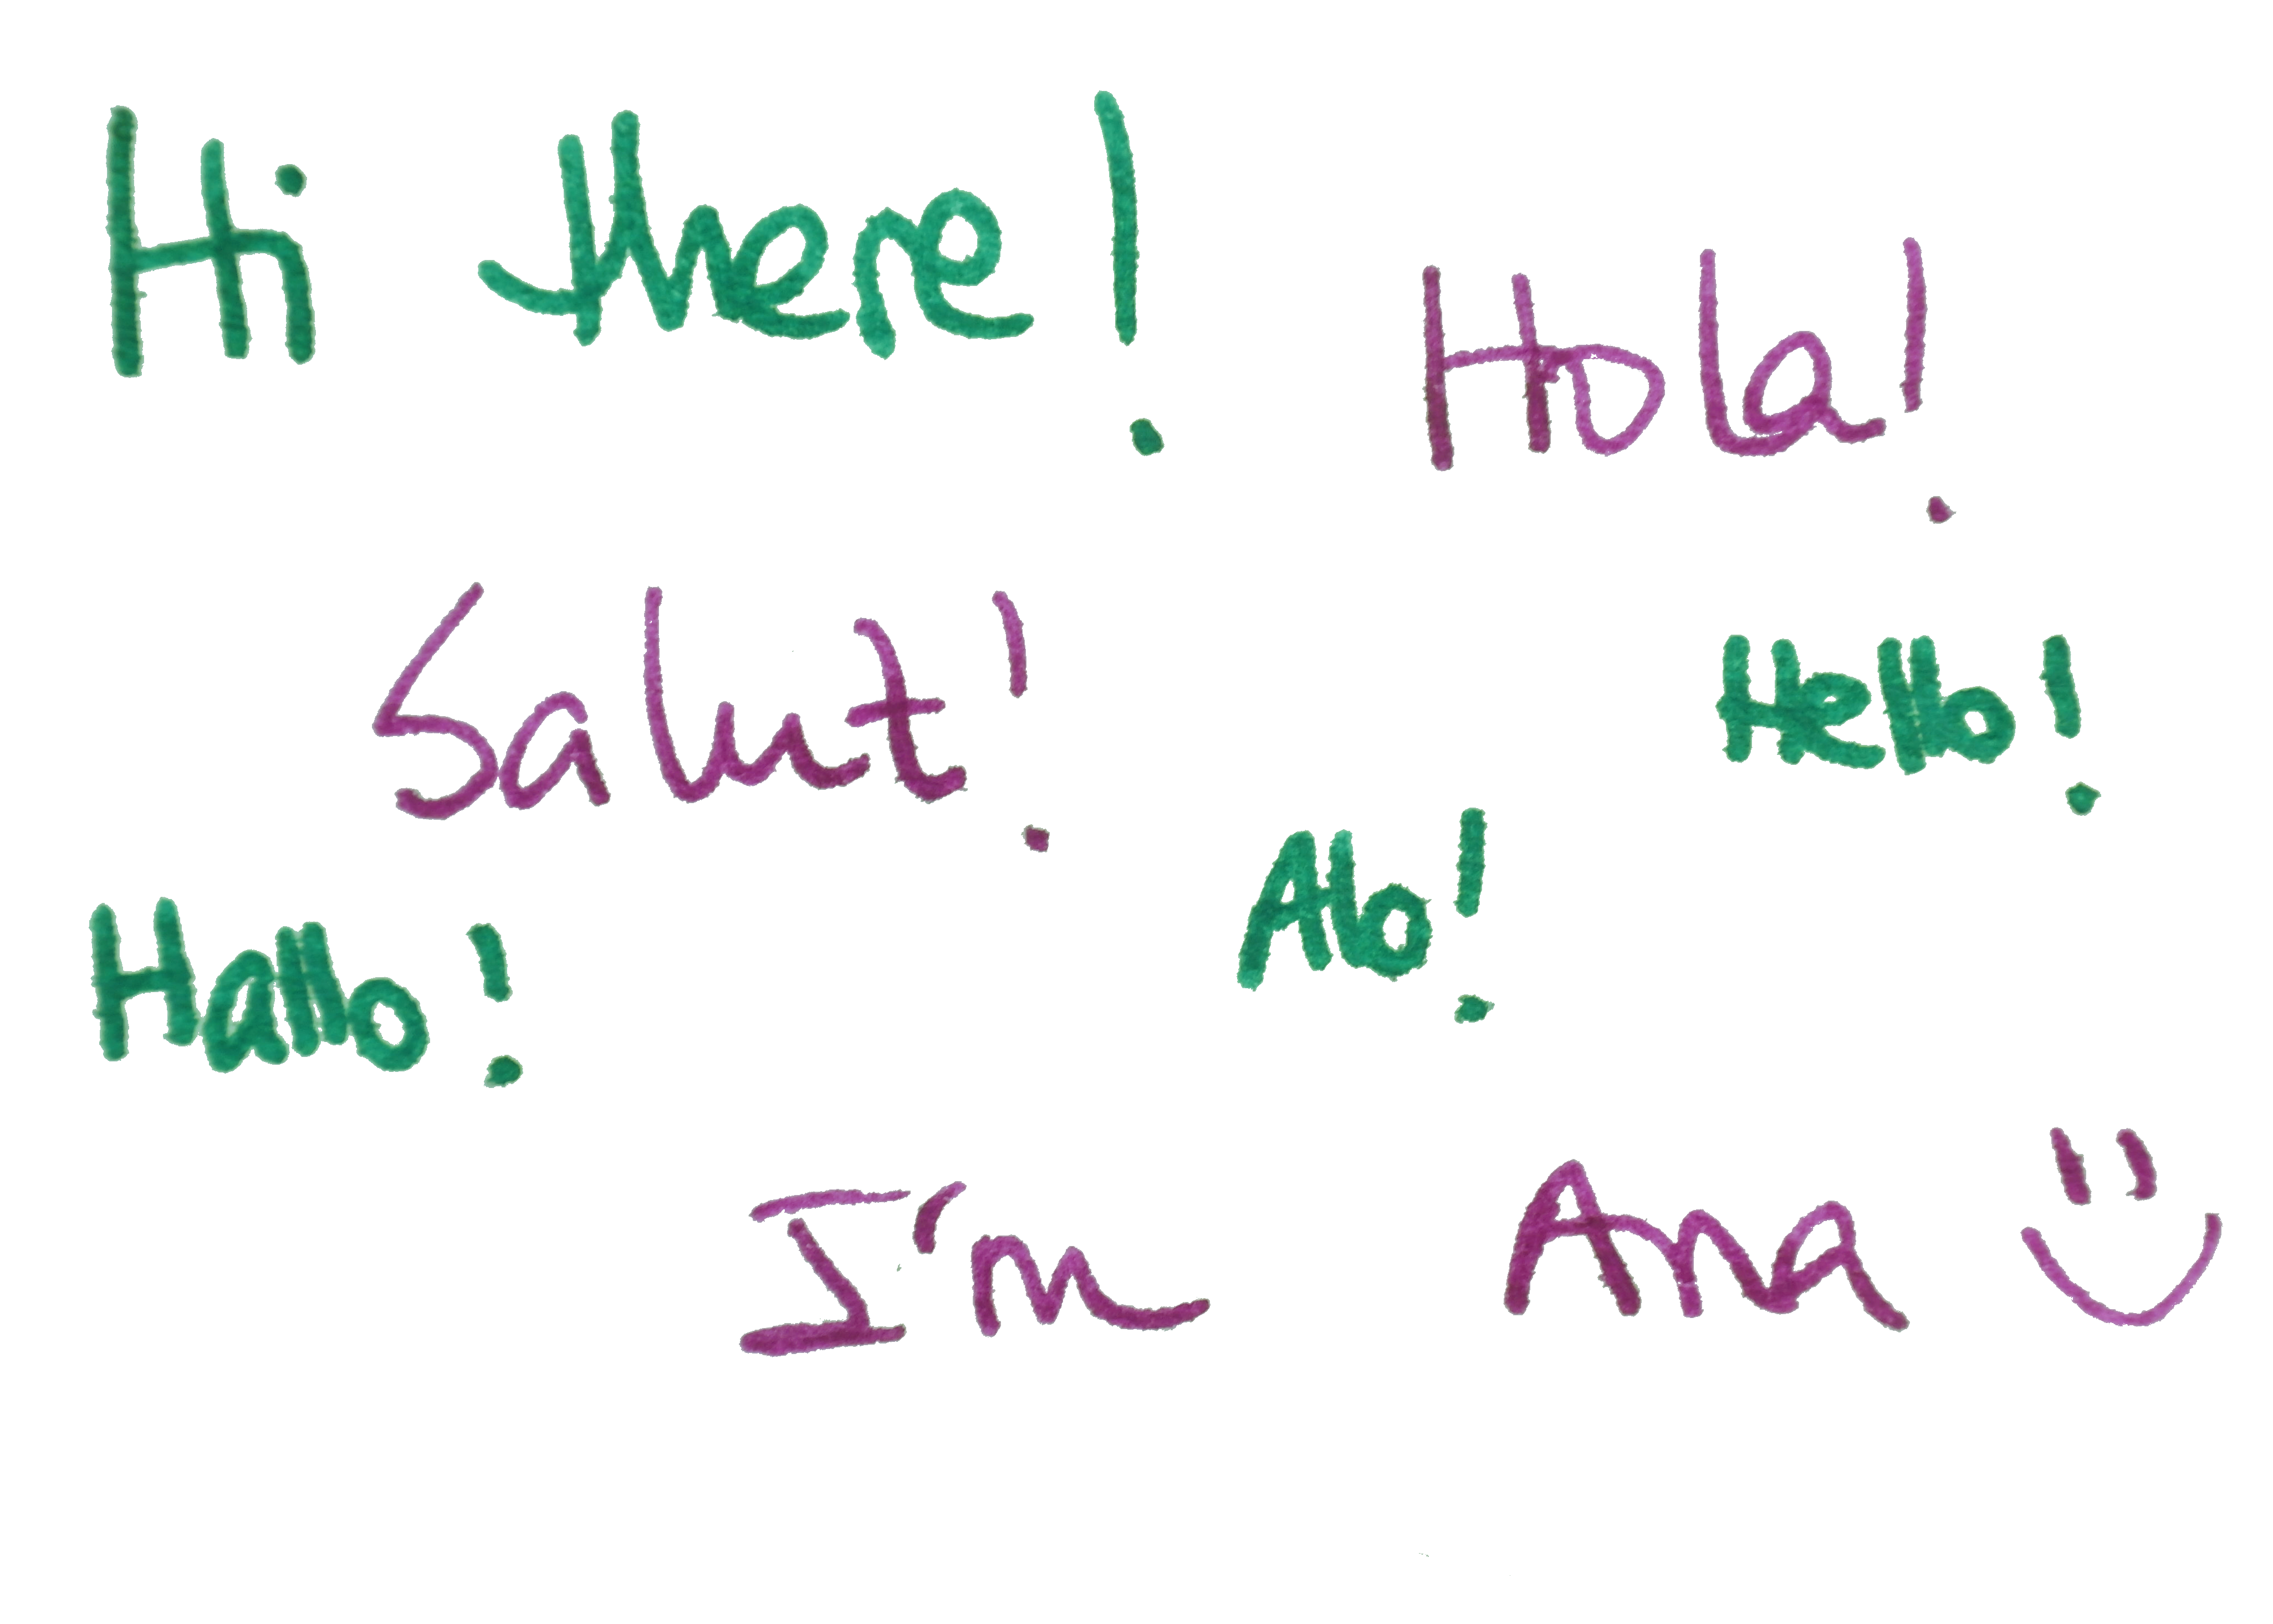 Hi there!
Hola!
Salut!
Hello!
Alo!
Hallo!
I'm Ana